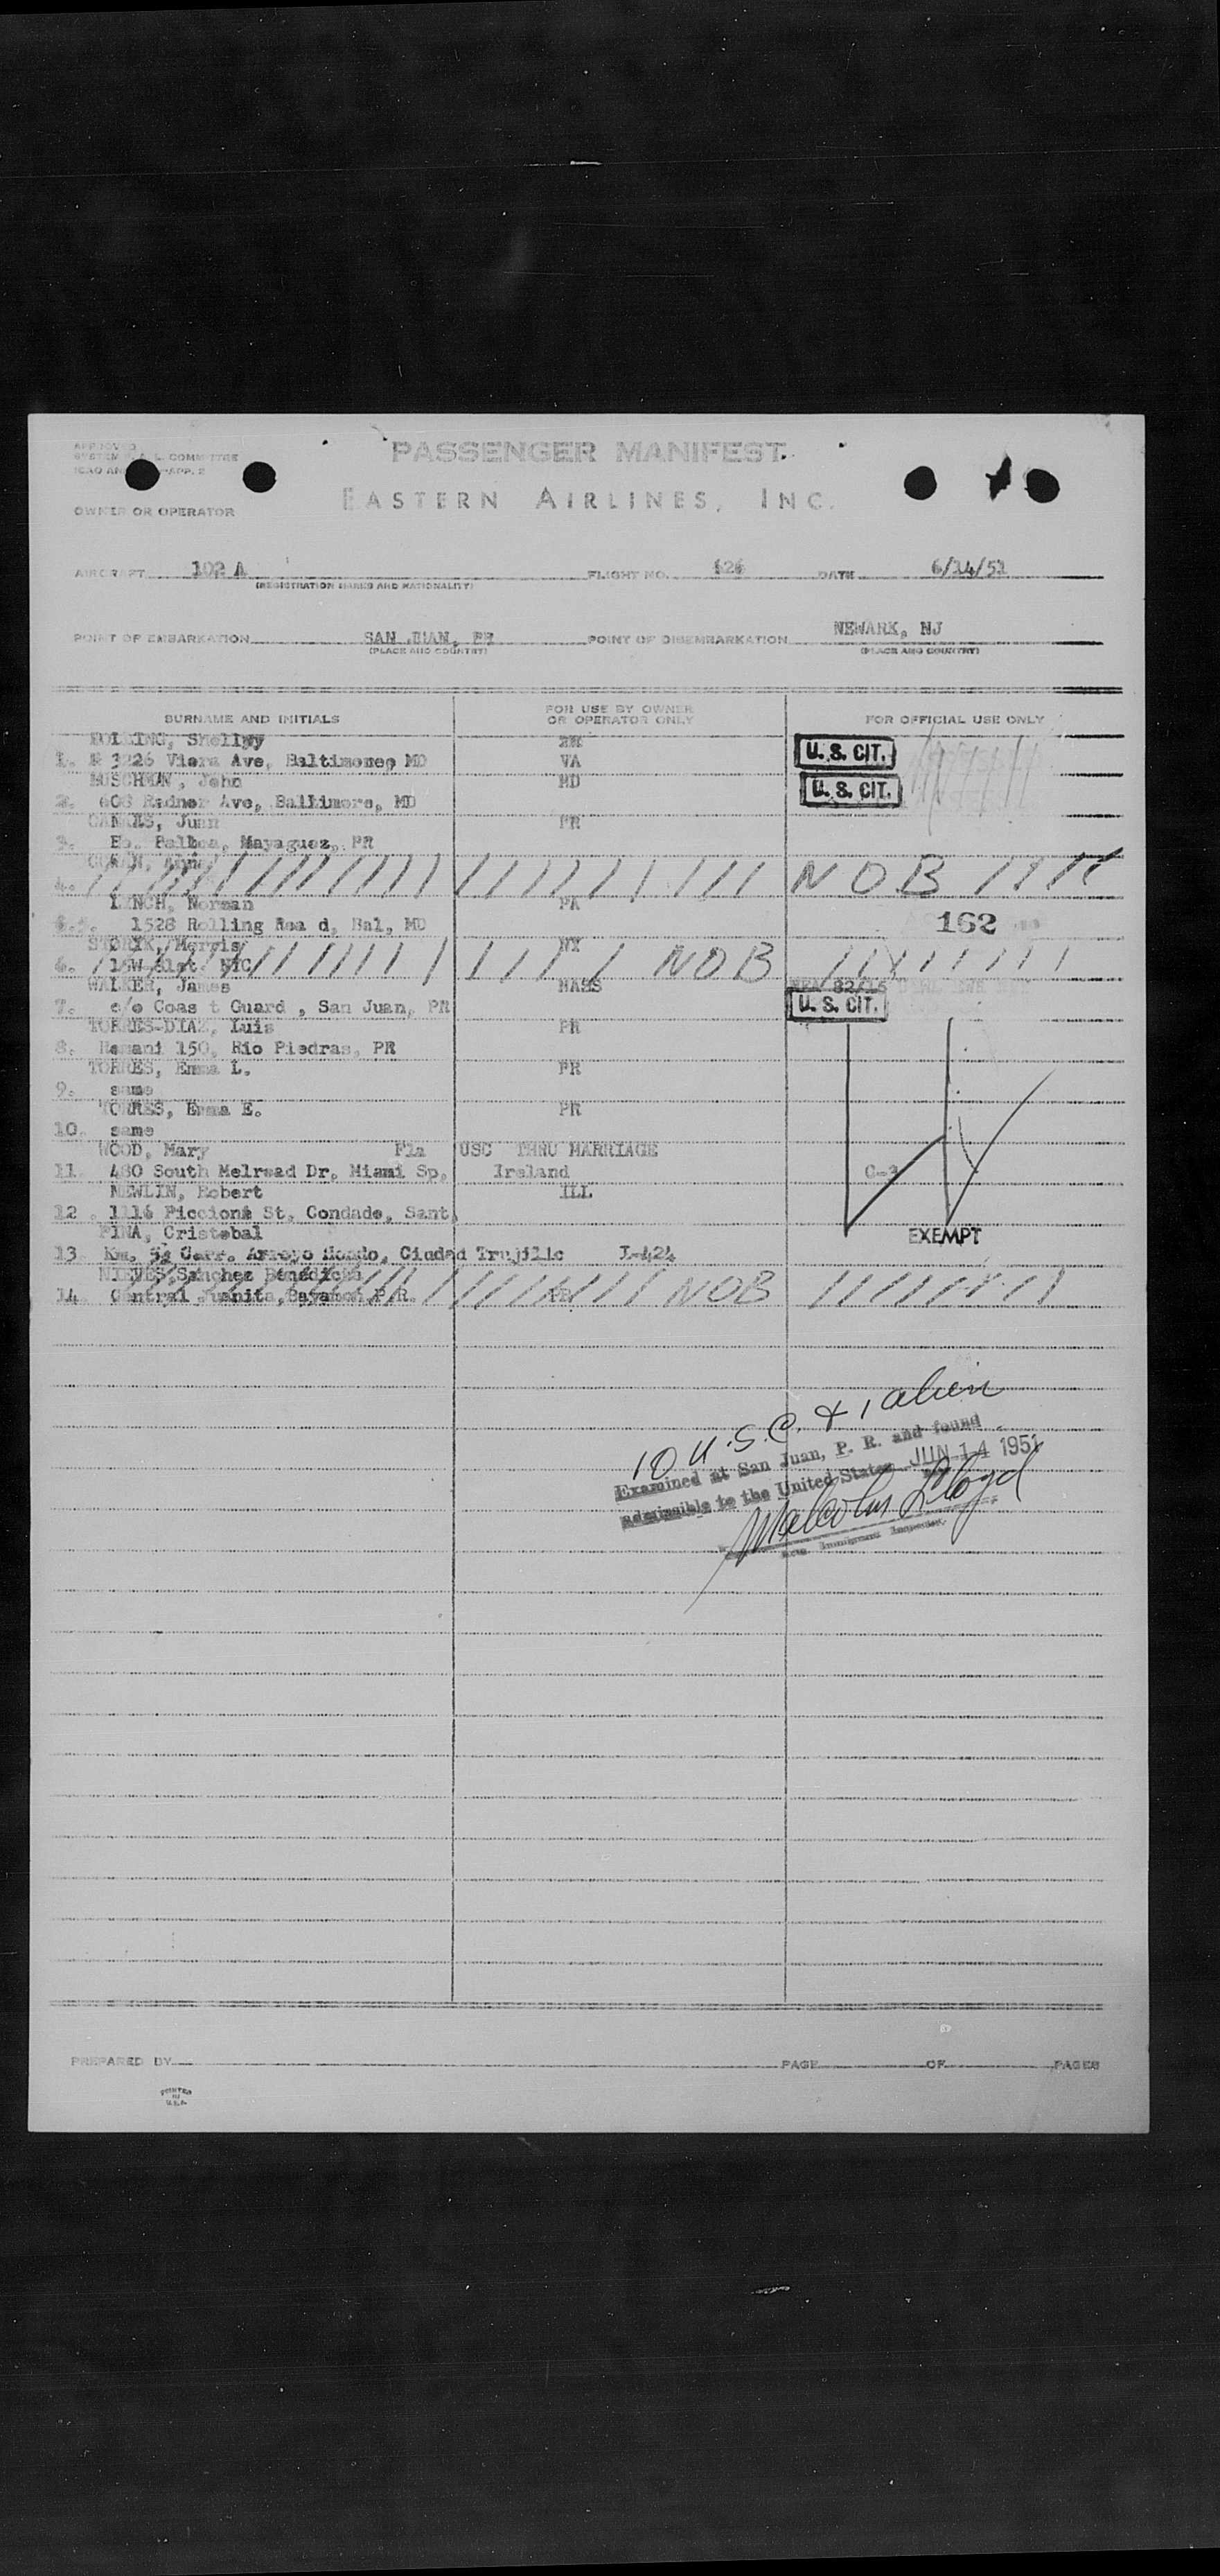 APPROVED
SYSTEM A.L. COMMITTEE
ICAO AN APP. 2
PASSENGER MANIFEST
EASTERN AIRLINES, INC.
OWNER OR OPERATOR
AIRCRAFT 102 A FLIGHT NO. 626 DATE 6/14/51
(REGISTRATION MARKS AND NATIONALITY)
POINT OF EMBARKATION SAN JUAN, PR POINT OF DISEMBARKATION NEWARK, NJ
(PLACE AND COUNTRY) (PLACE AND COUNTRY)
SURNAME AND INITIALS FOR USE BY OWNER OR OPERATOR ONLY FOR OFFICIAL USE ONLY
Shelly
1. 3226 Viers Ave, Baltimore MD VA U. S. CIT.
John MD
2. Radner Ave, Baltimore, MD U. S. CIT.
Juan PR
3. Bo. Balboa, Mayaguez, PR
4. NOB
LYNCH, Norman PA
5. 1528 Rolling Roa d, Bal, MD 162
Morris NY
6. NYC NOB
WALKER, James MASS
7. c/o Coas t Guard , San Juan, PR U. S. CIT.
TORRES-DIAZ, Luis PR
8. 150, Rio Piedras, PR
TORRES, Emma L. PR
9. same
TORRES, Emma E. PR
10. same
WOOD, Mary Fla USC THRU MARRIAGE
11. 480 South Melread Dr. Miami Sp, Ireland C-3
NEWLIN, Robert ILL
12. 1116 Piccioni St, Condado, Sant EXEMPT
PINA, Cristobal
13. Km. 5½ Carr. Arroyo Hondo, Ciudad Trujillo I-424
NIEVES, Sanchez Benedicto
14 Central Juanita, Bayamon, P.R. PR NOB
10 U.S.C. & 1 alien
Examined at San Juan, P. R. and found
admissible to the United States JUN 14 1951
Malcolm Lloyd
Immigrant Inspector
PREPARED BY PAGE OF PAGES
PRINTED
IN
U.S.A.